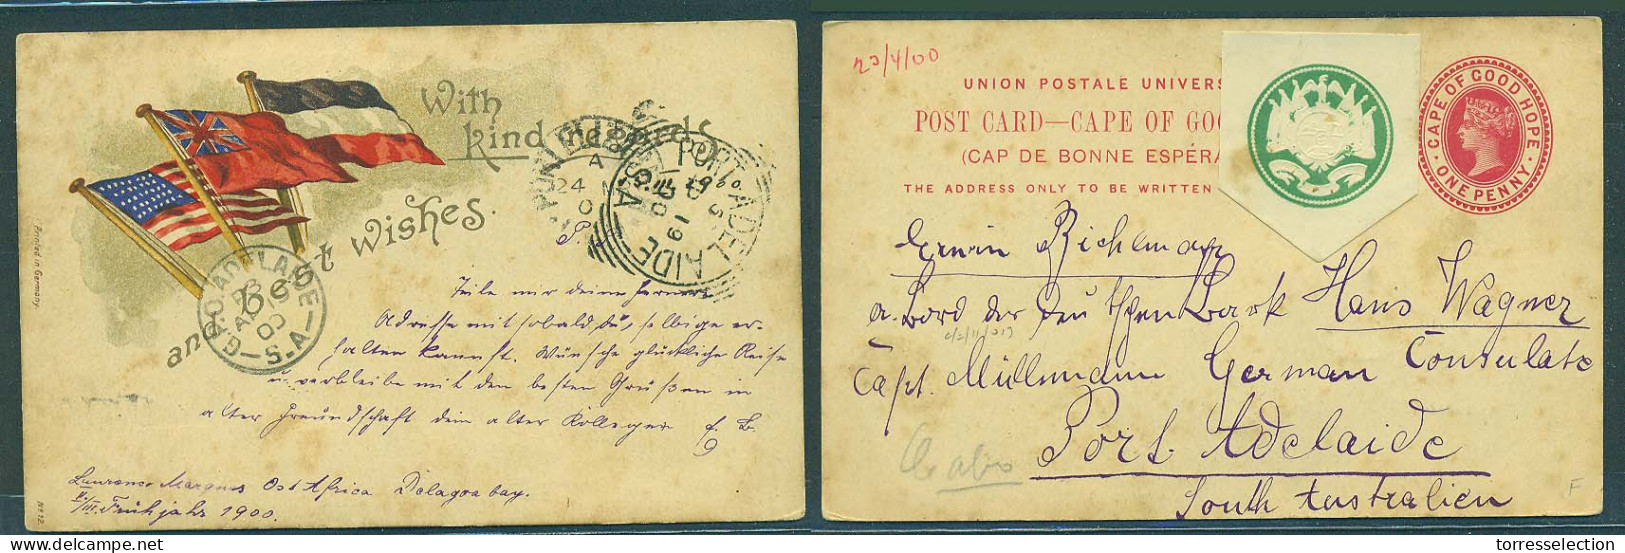 With
kind regards
and best wishes.
Printed in Germany.
No 12.
PORT ADELAIDE
G.P.O. ADELAIDE
S.A.
00
Teile mir deine fernere
Adresse mit sobald du, selbige er-
halten kannst. Wünsche glückliche Reise
u. verbleibe mit den besten Grüßen in
alter Freundschaft dein alter Kollege
Laurenco Marques Ost Africa Delagoa bay.
Frühjahr 1900.
23/4/00
UNION POSTALE UNIVERS
POST CARD—CAPE OF GOO
(CAP DE BONNE ESPÉRA
THE ADDRESS ONLY TO BE WRITTEN
CAPE OF GOOD HOPE
ONE PENNY
Erwin
a. Bord der deutschen Bark Hans Wagner
Capt. Müllmann German Consulate
Port. Adelaide
South Australien
F
www.delcampe.net
torresselection